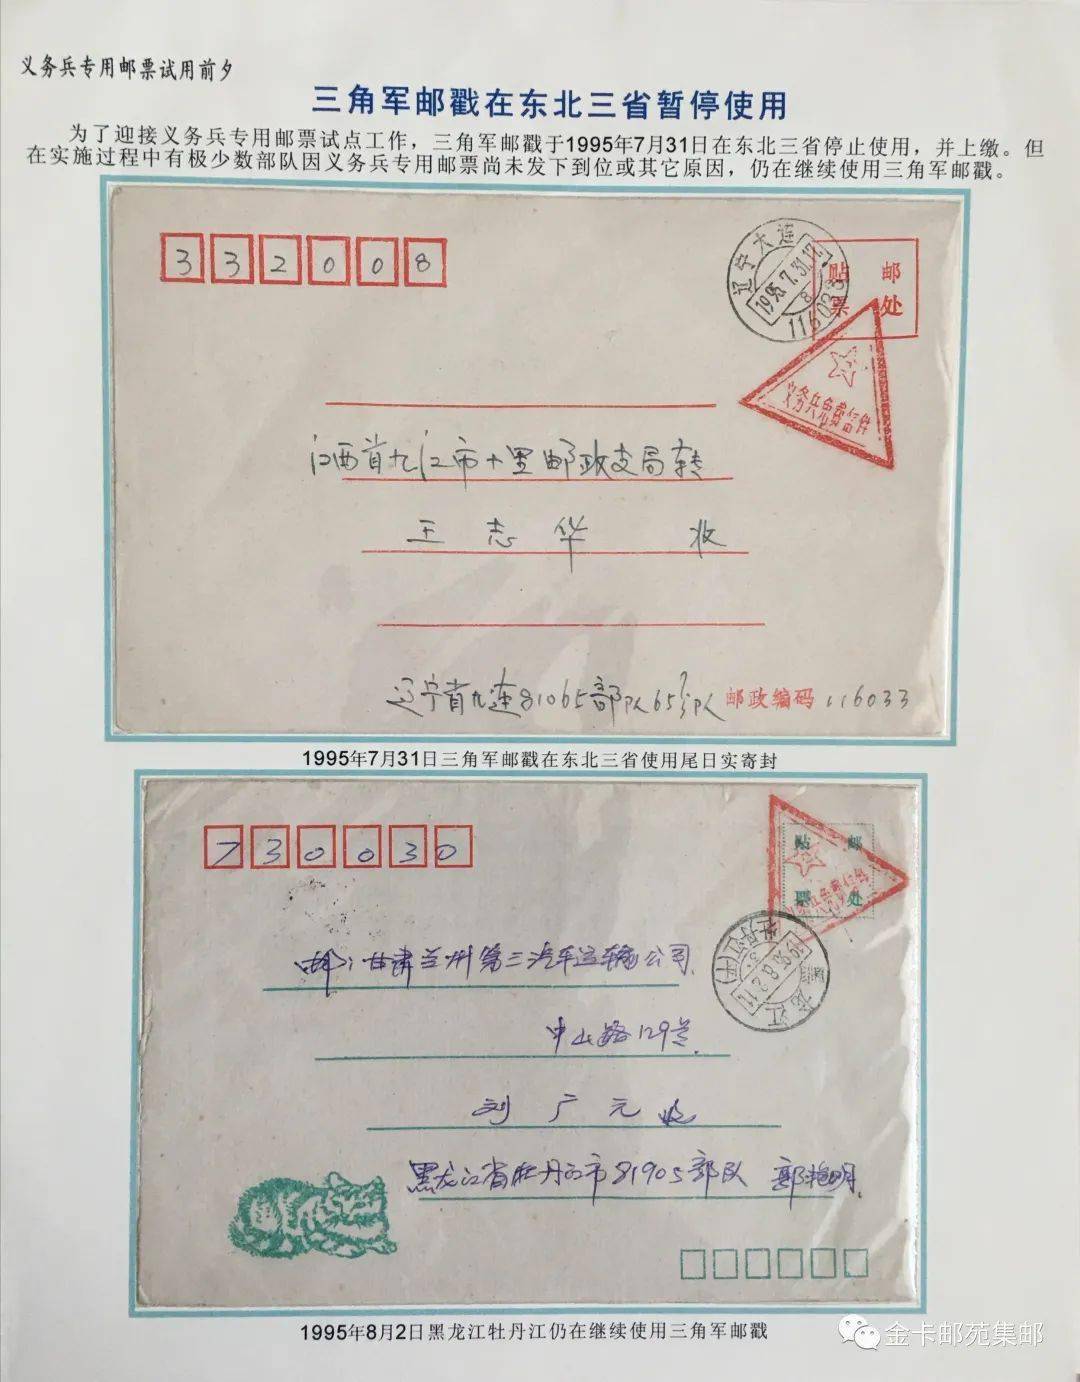 义务兵专用邮票试用前夕
三角军邮戳在东北三省暂停使用
为了迎接义务兵专用邮票试点工作，三角军邮戳于1995年7月31日在东北三省停止使用，并上缴。但
在实施过程中有极少数部队因义务兵专用邮票尚未发下到位或其它原因，仍在继续使用三角军邮戳。
332008
辽宁大连
1995.7.31.17
8
贴 邮
票 处
义务兵免费信件
江西省九江市十里邮政支局转
王志华 收
辽宁省大连81065部队65分队 邮政编码 116033
1995年7月31日三角军邮戳在东北三省使用尾日实寄封
730030
贴 邮
票 处
义务兵免费信件
黑龙江
牡丹江
邮: 甘肃兰州第三汽车运输公司
中山路129号
刘广元 收
黑龙江省牡丹江市81905部队 郭艳明
1995年8月2日黑龙江牡丹江仍在继续使用三角军邮戳
金卡邮苑集邮